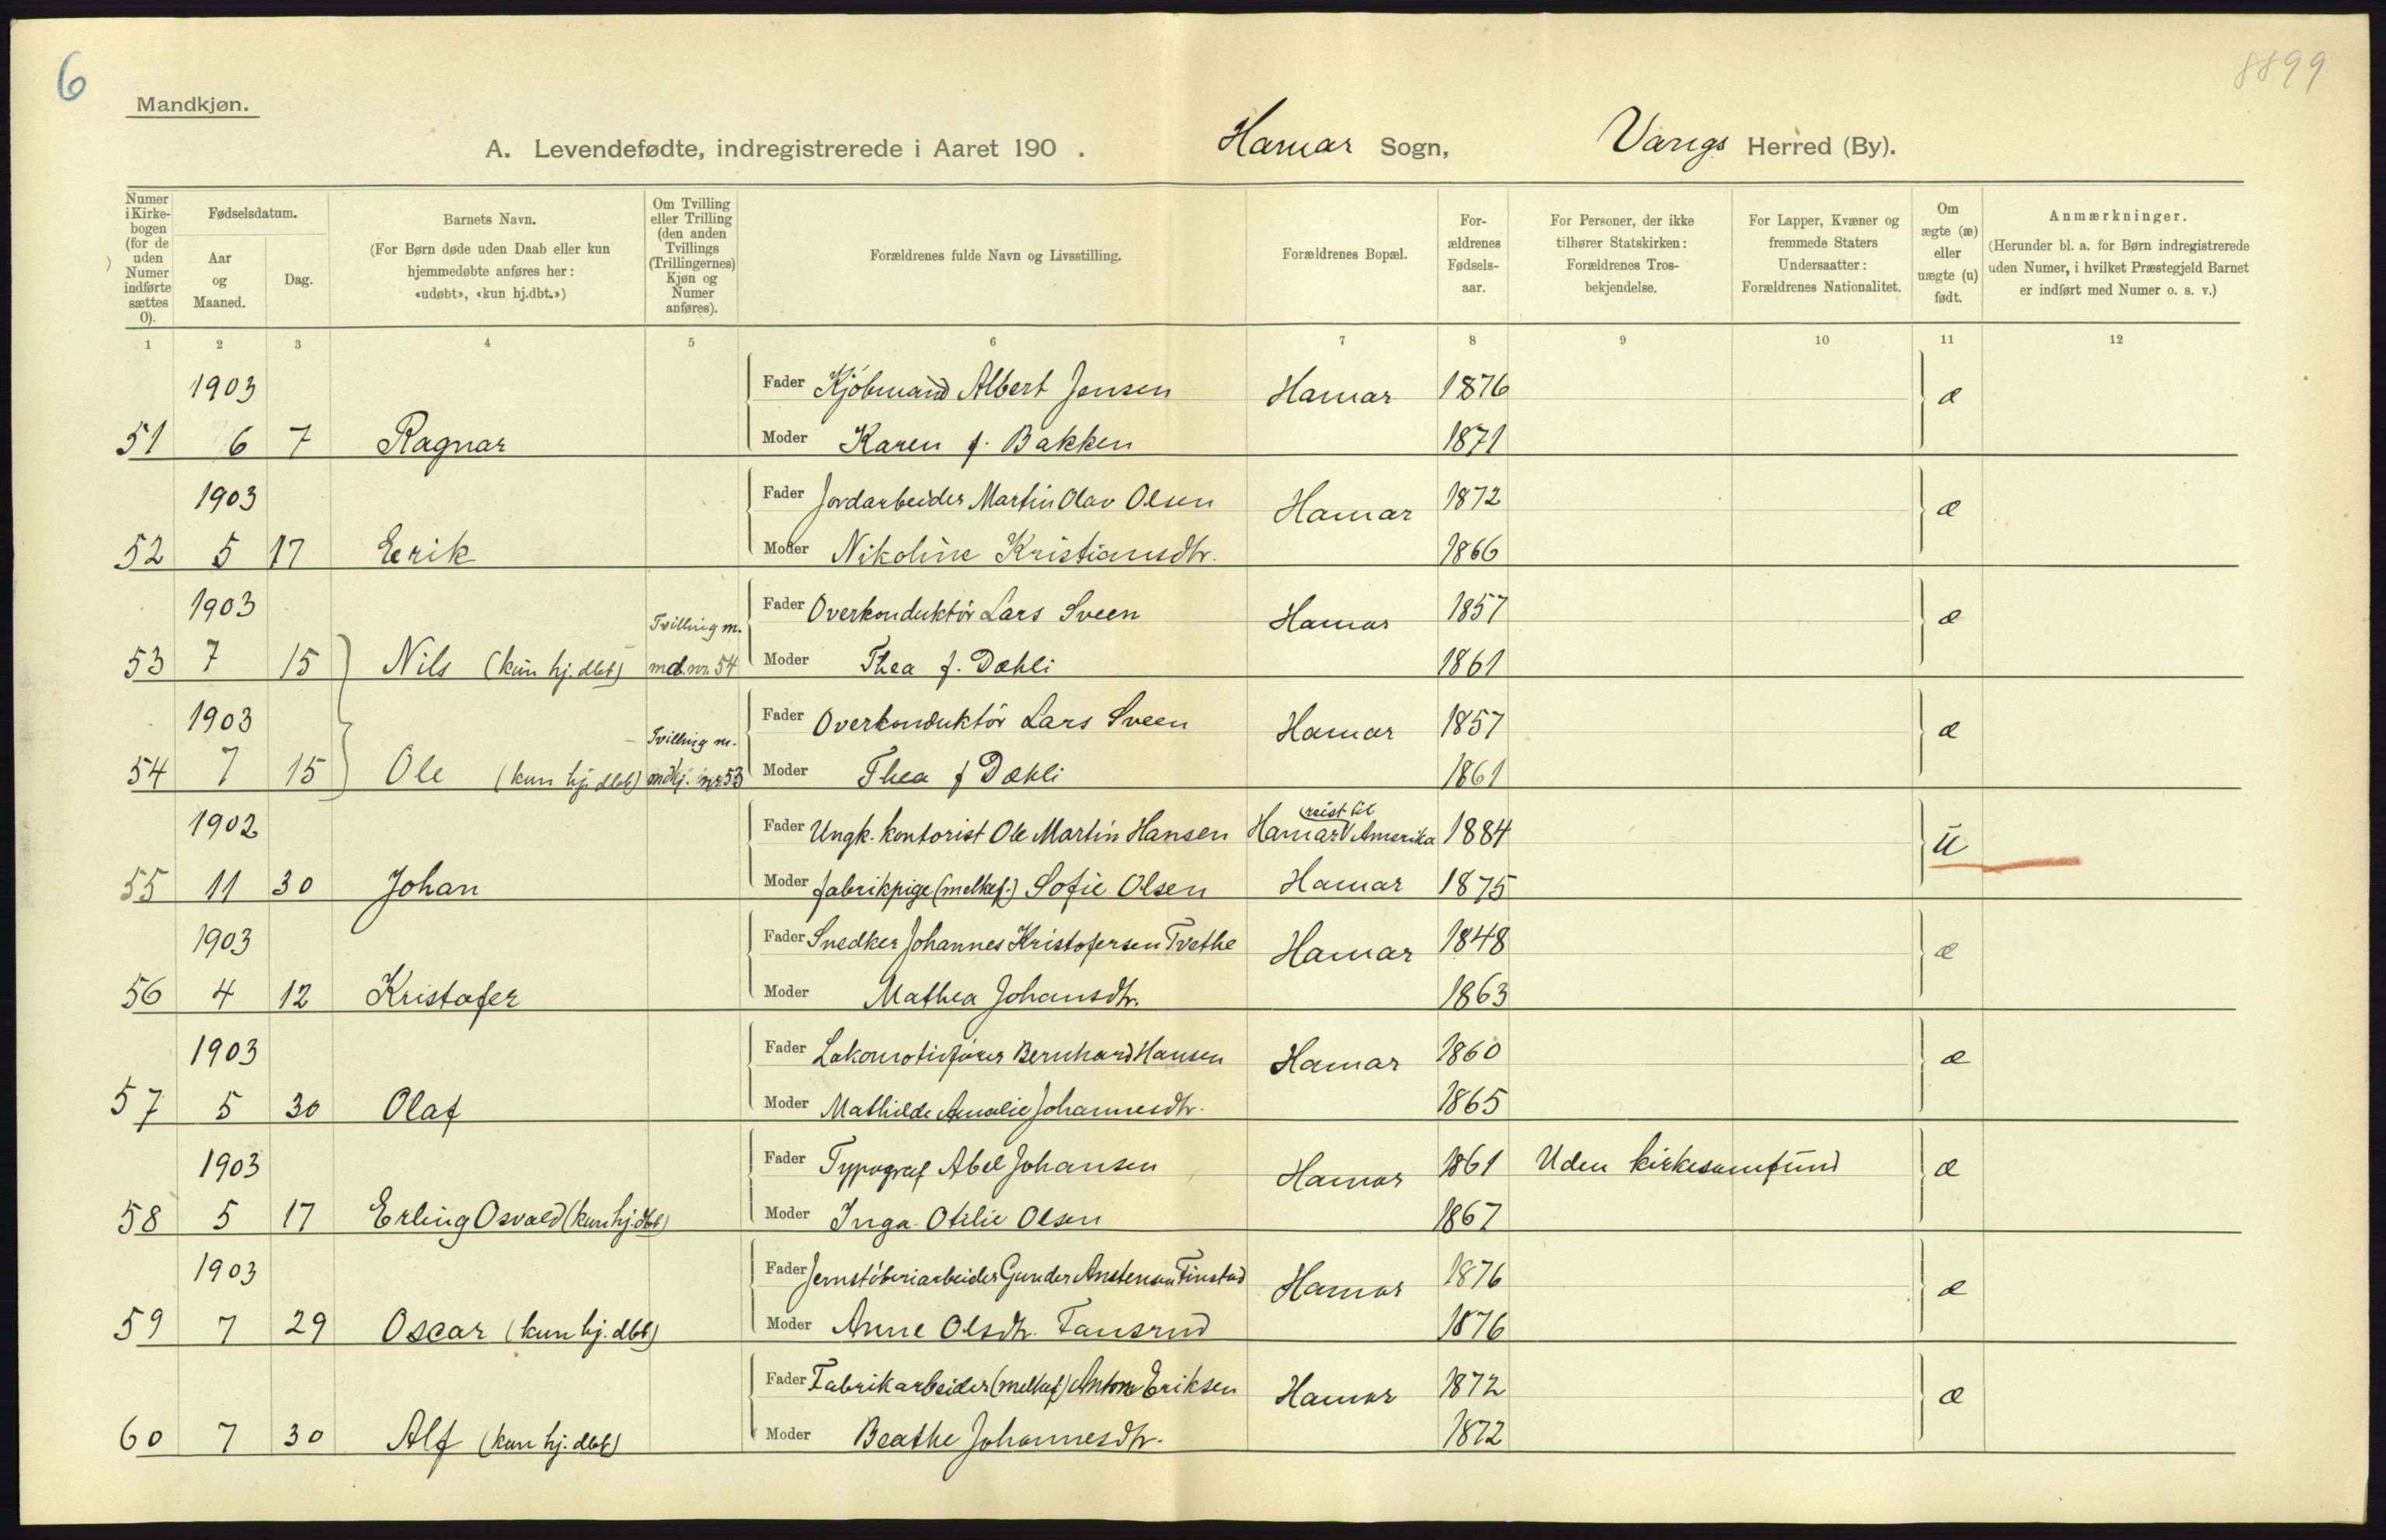 6
8899
Mandkjøn.
A. Levendefødte, indregistrerede i Aaret 190 . Hamar Sogn, Vangs Herred (By).
Numer i Kirke-bogen (for de uden Numer indførte sættes 0).
Fødselsdatum.
Aar og Maaned.
Dag.
Barnets Navn.
(For Børn døde uden Daab eller kun hjemmedøbte anføres her: «udøbt», «kun hj.dbt.»)
Om Tvilling eller Trilling (den anden Tvillings (Trillingernes) Kjøn og Numer anføres).
Forældrenes fulde Navn og Livsstilling.
Forældrenes Bopæl.
For-ældrenes Fødsels-aar.
For Personer, der ikke tilhører Statskirken: Forældrenes Tros-bekjendelse.
For Lapper, Kvæner og fremmede Staters Undersaatter: Forældrenes Nationalitet.
Om ægte (æ) eller uægte (u) født.
Anmærkninger.
(Herunder bl. a. for Børn indregistrerede uden Numer, i hvilket Præstegjeld Barnet er indført med Numer o. s. v.)
1 2 3 4 5 6 7 8 9 10 11 12
1903 Fader Kjøbmand Albert Jensen Hamar 1876 æ
51 6 7 Ragnar Moder Karen f. Bakken 1871
1903 Fader Jordarbeider Martin Olav Olsen Hamar 1872 æ
52 5 17 Erik Moder Nikoline Kristiansdtr. 1866
1903 Tvilling m. Fader Overkonduktør Lars Sveen Hamar 1857 æ
53 7 15 Nils (kun hj. dbt) md. nr. 54 Moder Thea f. Dæhli 1861
1903 Tvilling m. Fader Overkonduktør Lars Sveen Hamar 1857 æ
54 7 15 Ole (kun hj. dbt) mdkj. nr 53 Moder Thea f Dæhli 1861
1902 Fader Ungk. kontorist Ole Martin Hansen Hamar reist til Amerika 1884 u
55 11 30 Johan Moder fabrikpige (melkef.) Sofie Olsen Hamar 1875
1903 Fader Snedker Johannes Kristofersen Tvethe Hamar 1848 æ
56 4 12 Kristofer Moder Mathea Johansdtr. 1863
1903 Fader Lokomotivfører Bernhard Hansen Hamar 1860 æ
57 5 30 Olaf Moder Mathilde Amalie Johannesdtr. 1865
1903 Fader Typograf Abel Johansen Hamar 1861 Uden kirkesamfund æ
58 5 17 Erling Osvald (kun hj. dbt) Moder Inga Otilie Olsen 1867
1903 Fader Jernstøberiarbeider Gunder Anstensen Finstad Hamar 1876 æ
59 7 29 Oscar (kun hj. dbt) Moder Anne Olsdtr. Fansrud 1876
Fader Fabrikarbeider (melkef) Anton Eriksen Hamar 1872 æ
60 7 30 Alf (kun hj. dbt) Moder Beathe Johannesdtr. 1872